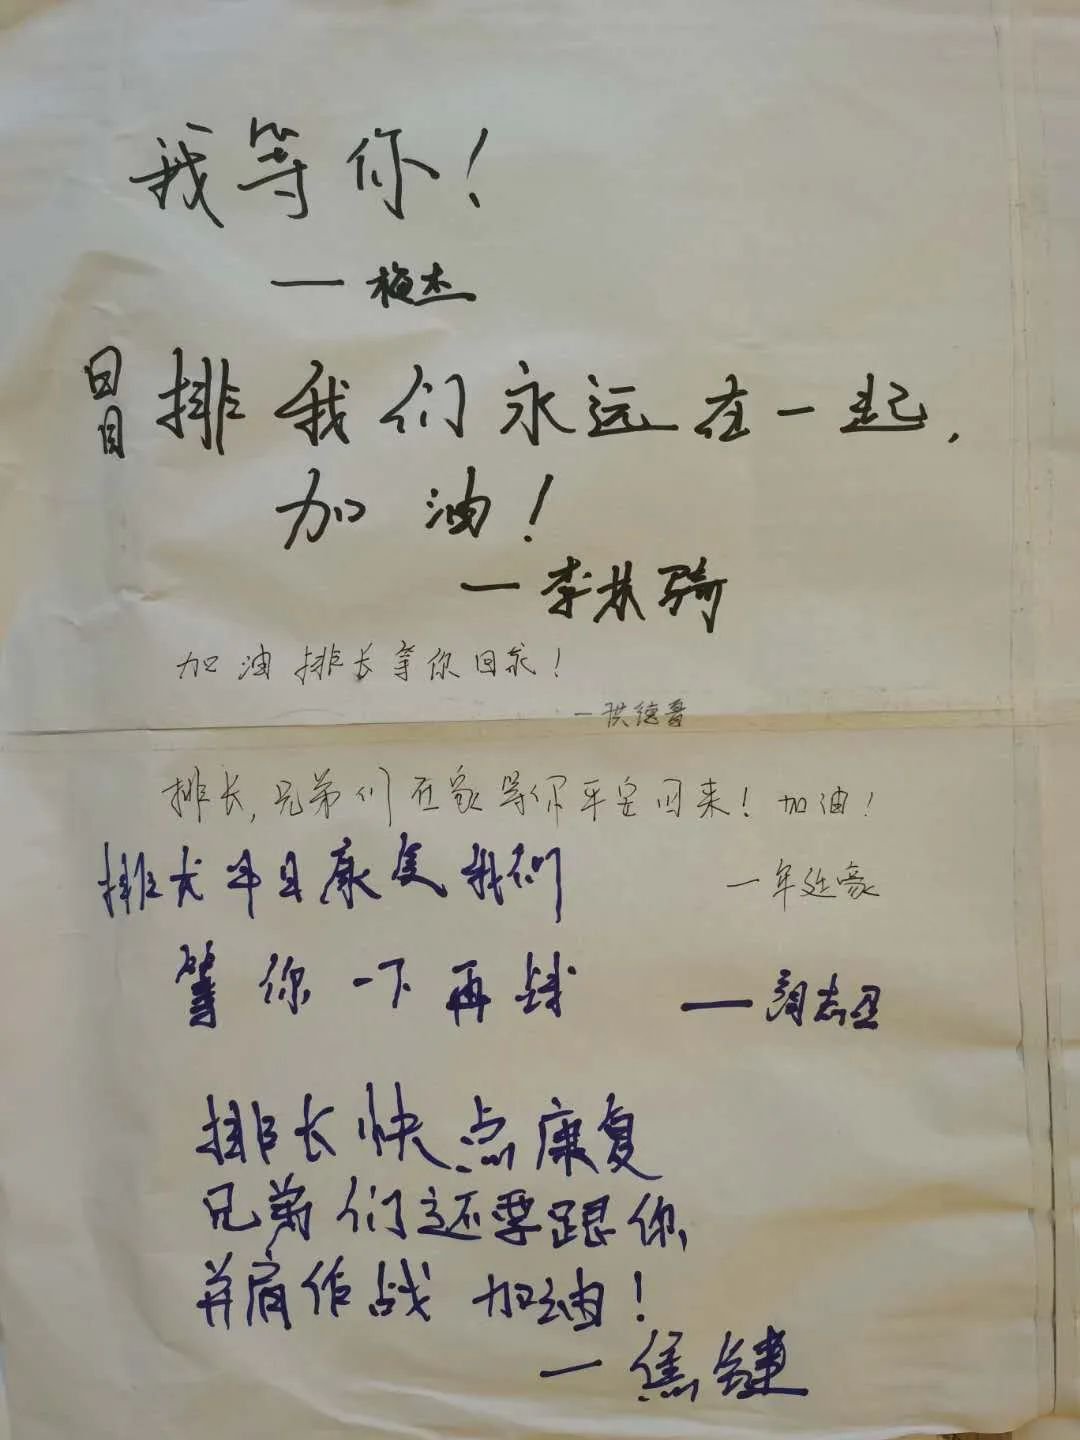 我等你！
—梅杰
冒排我们永远在一起，
加油！
—李林骑
加油排长等你回来！
—洪德晋
排长，兄弟们在家等你平安回来！加油！
—年廷豪
排长早日康复我们
等你一下再战
—颜志卫
排长快点康复
兄弟们还要跟你
并肩作战 加油！
—焦键